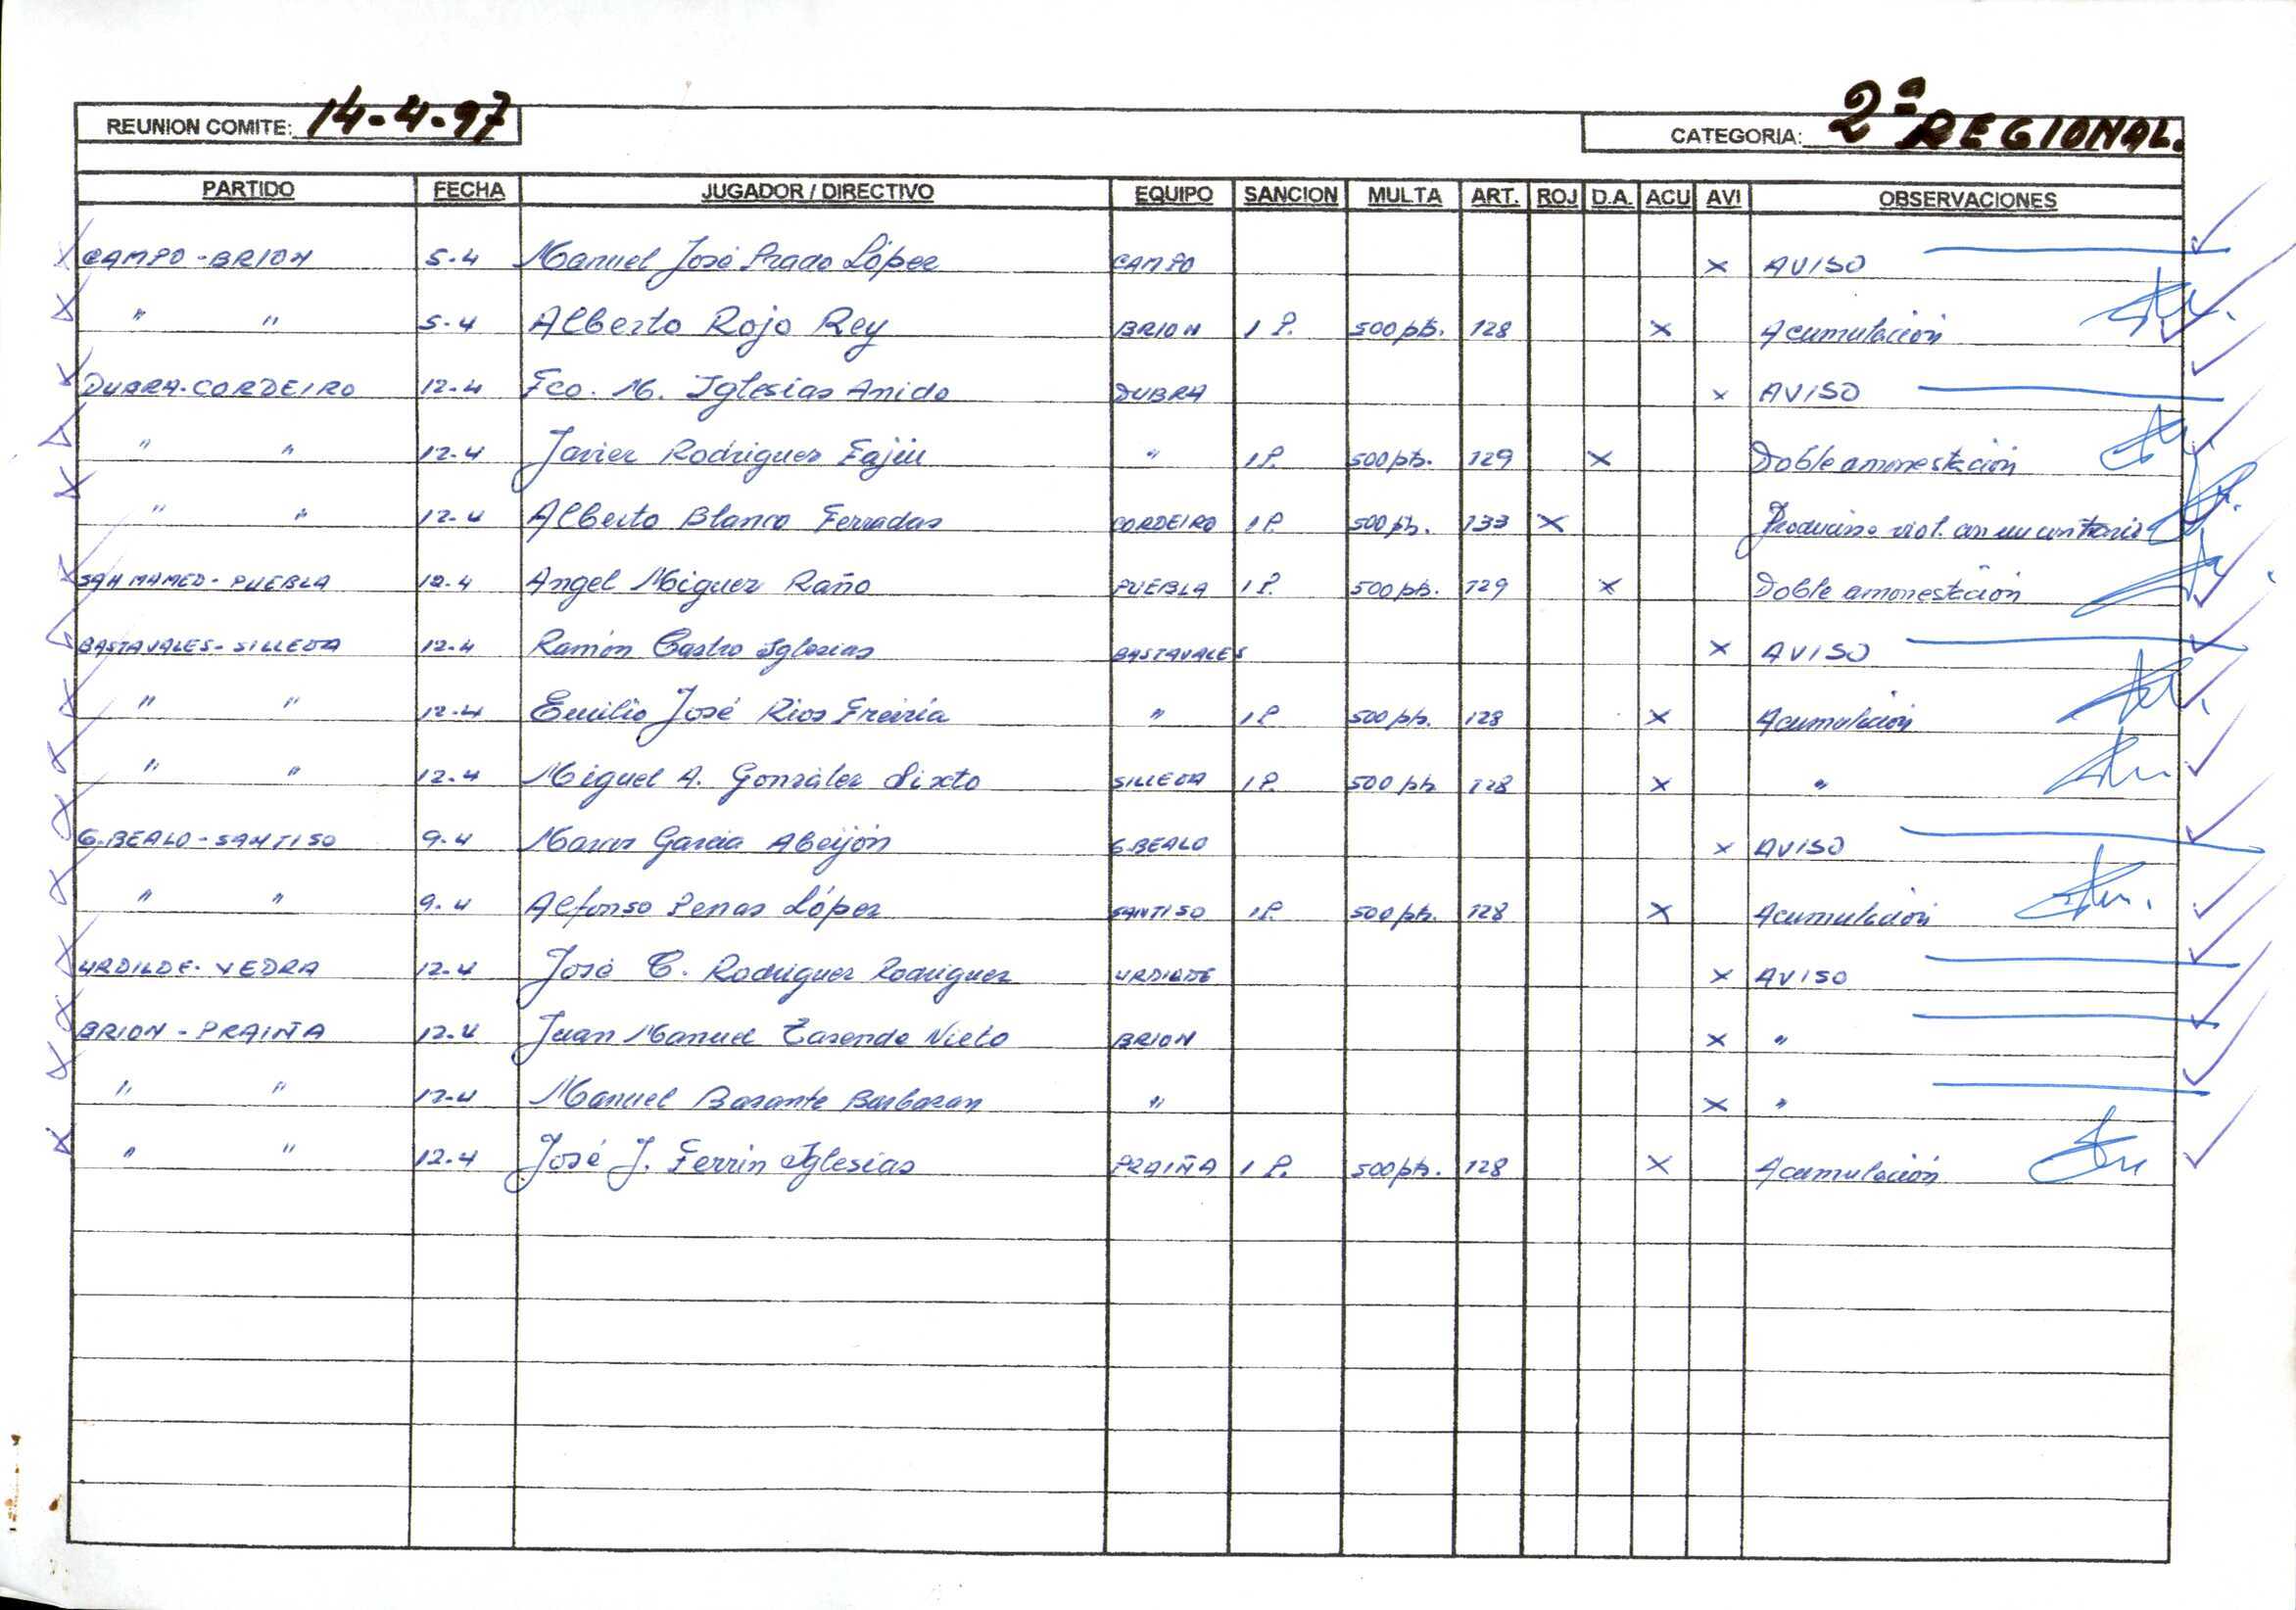 REUNION COMITE: 14-4-97 CATEGORIA: 2ª REGIONAL.
PARTIDO FECHA JUGADOR / DIRECTIVO EQUIPO SANCION MULTA ART. ROJ D.A. ACU AVI OBSERVACIONES
CAMPO-BRION 5-4 Manuel José Prado López CAMPO X AVISO
" " 5-4 Alberto Rojo Rey BRION 1 P. 500 pts. 128 X Acumulación
DUBRA-CORDEIRO 12-4 Fco. M. Iglesias Anido DUBRA X AVISO
" " 12-4 Javier Rodriguez " 1 P. 500 pts. 129 X Doble amonestación
" " 12-4 Alberto Blanco Ferradas CORDEIRO 1 P. 500 pts. 133 X Producirse viol. con un contrario
SAN MAMED-PUEBLA 12-4 Angel Miguez Raño PUEBLA 1 P. 500 pts. 129 X Doble amonestación
BASTAVALES-SILLEDA 12-4 Ramón Castro Iglesias BASTAVALES X AVISO
" " 12-4 Emilio José Rios Freiría " 1 P. 500 pts. 128 X Acumulación
" " 12-4 Miguel A. González Sixto SILLEDA 1 P. 500 pts 128 X "
G.BEALO-SANTISO 9-4 Marcos Garcia Abeijón G.BEALO X AVISO
" " 9-4 Alfonso Penas López SANTISO 1 P. 500 pts. 128 X Acumulación
URDILDE-VEDRA 12-4 José C. Rodriguez Rodriguez URDILDE X AVISO
BRION-PRAIÑA 12-4 Juan Manuel Tasende Nieto BRION X "
" " 12-4 Manuel Basante Barbazan " X "
" " 12-4 José J. Ferrin Iglesias PRAIÑA 1 P. 500 pts. 128 X Acumulación